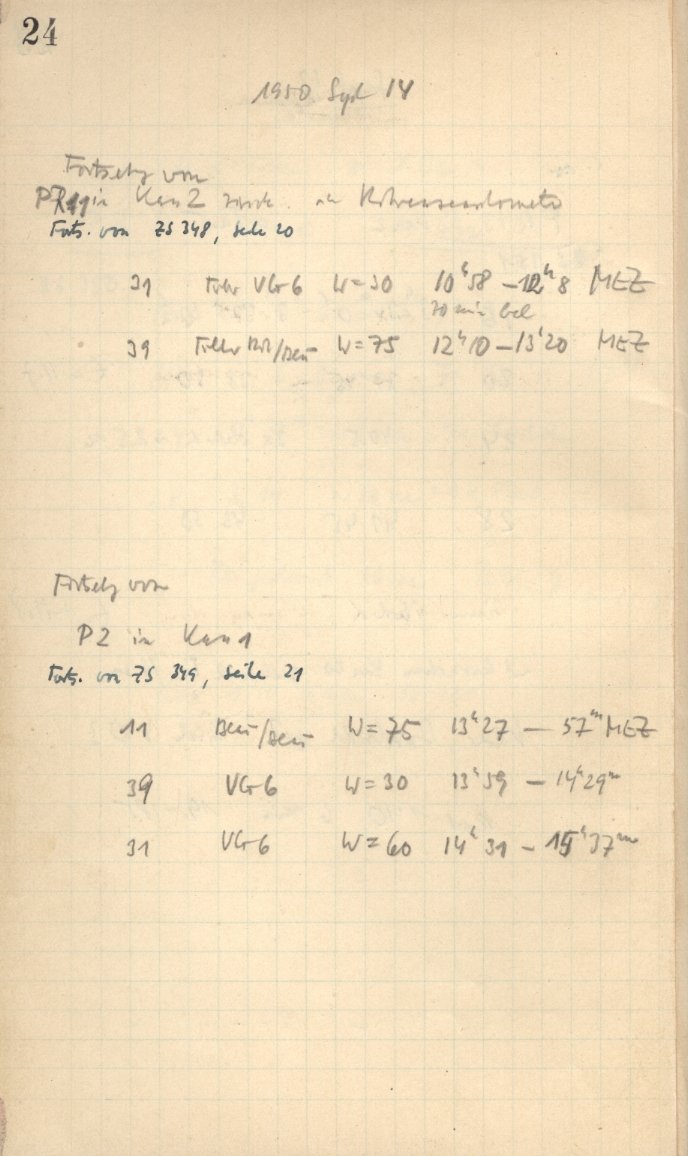 24
1950 Sept 14
Fortsetzg von
in Kam 2
Forts. von ZS 348, Seite 20
31 VG 6 W=30 10ʰ58 – 12ʰ8 MEZ
70 min bel
39 W=75 12ʰ10 – 13ʰ20 MEZ
Fortsetzg von
P2 in Kam 1
Forts. von ZS 349, Seite 21
11 W=75 13ʰ27 – 57ᵐ MEZ
39 VG 6 W=30 13ʰ59 – 14ʰ29ᵐ
31 VG 6 W=60 14ʰ31 – 15ʰ37ᵐ